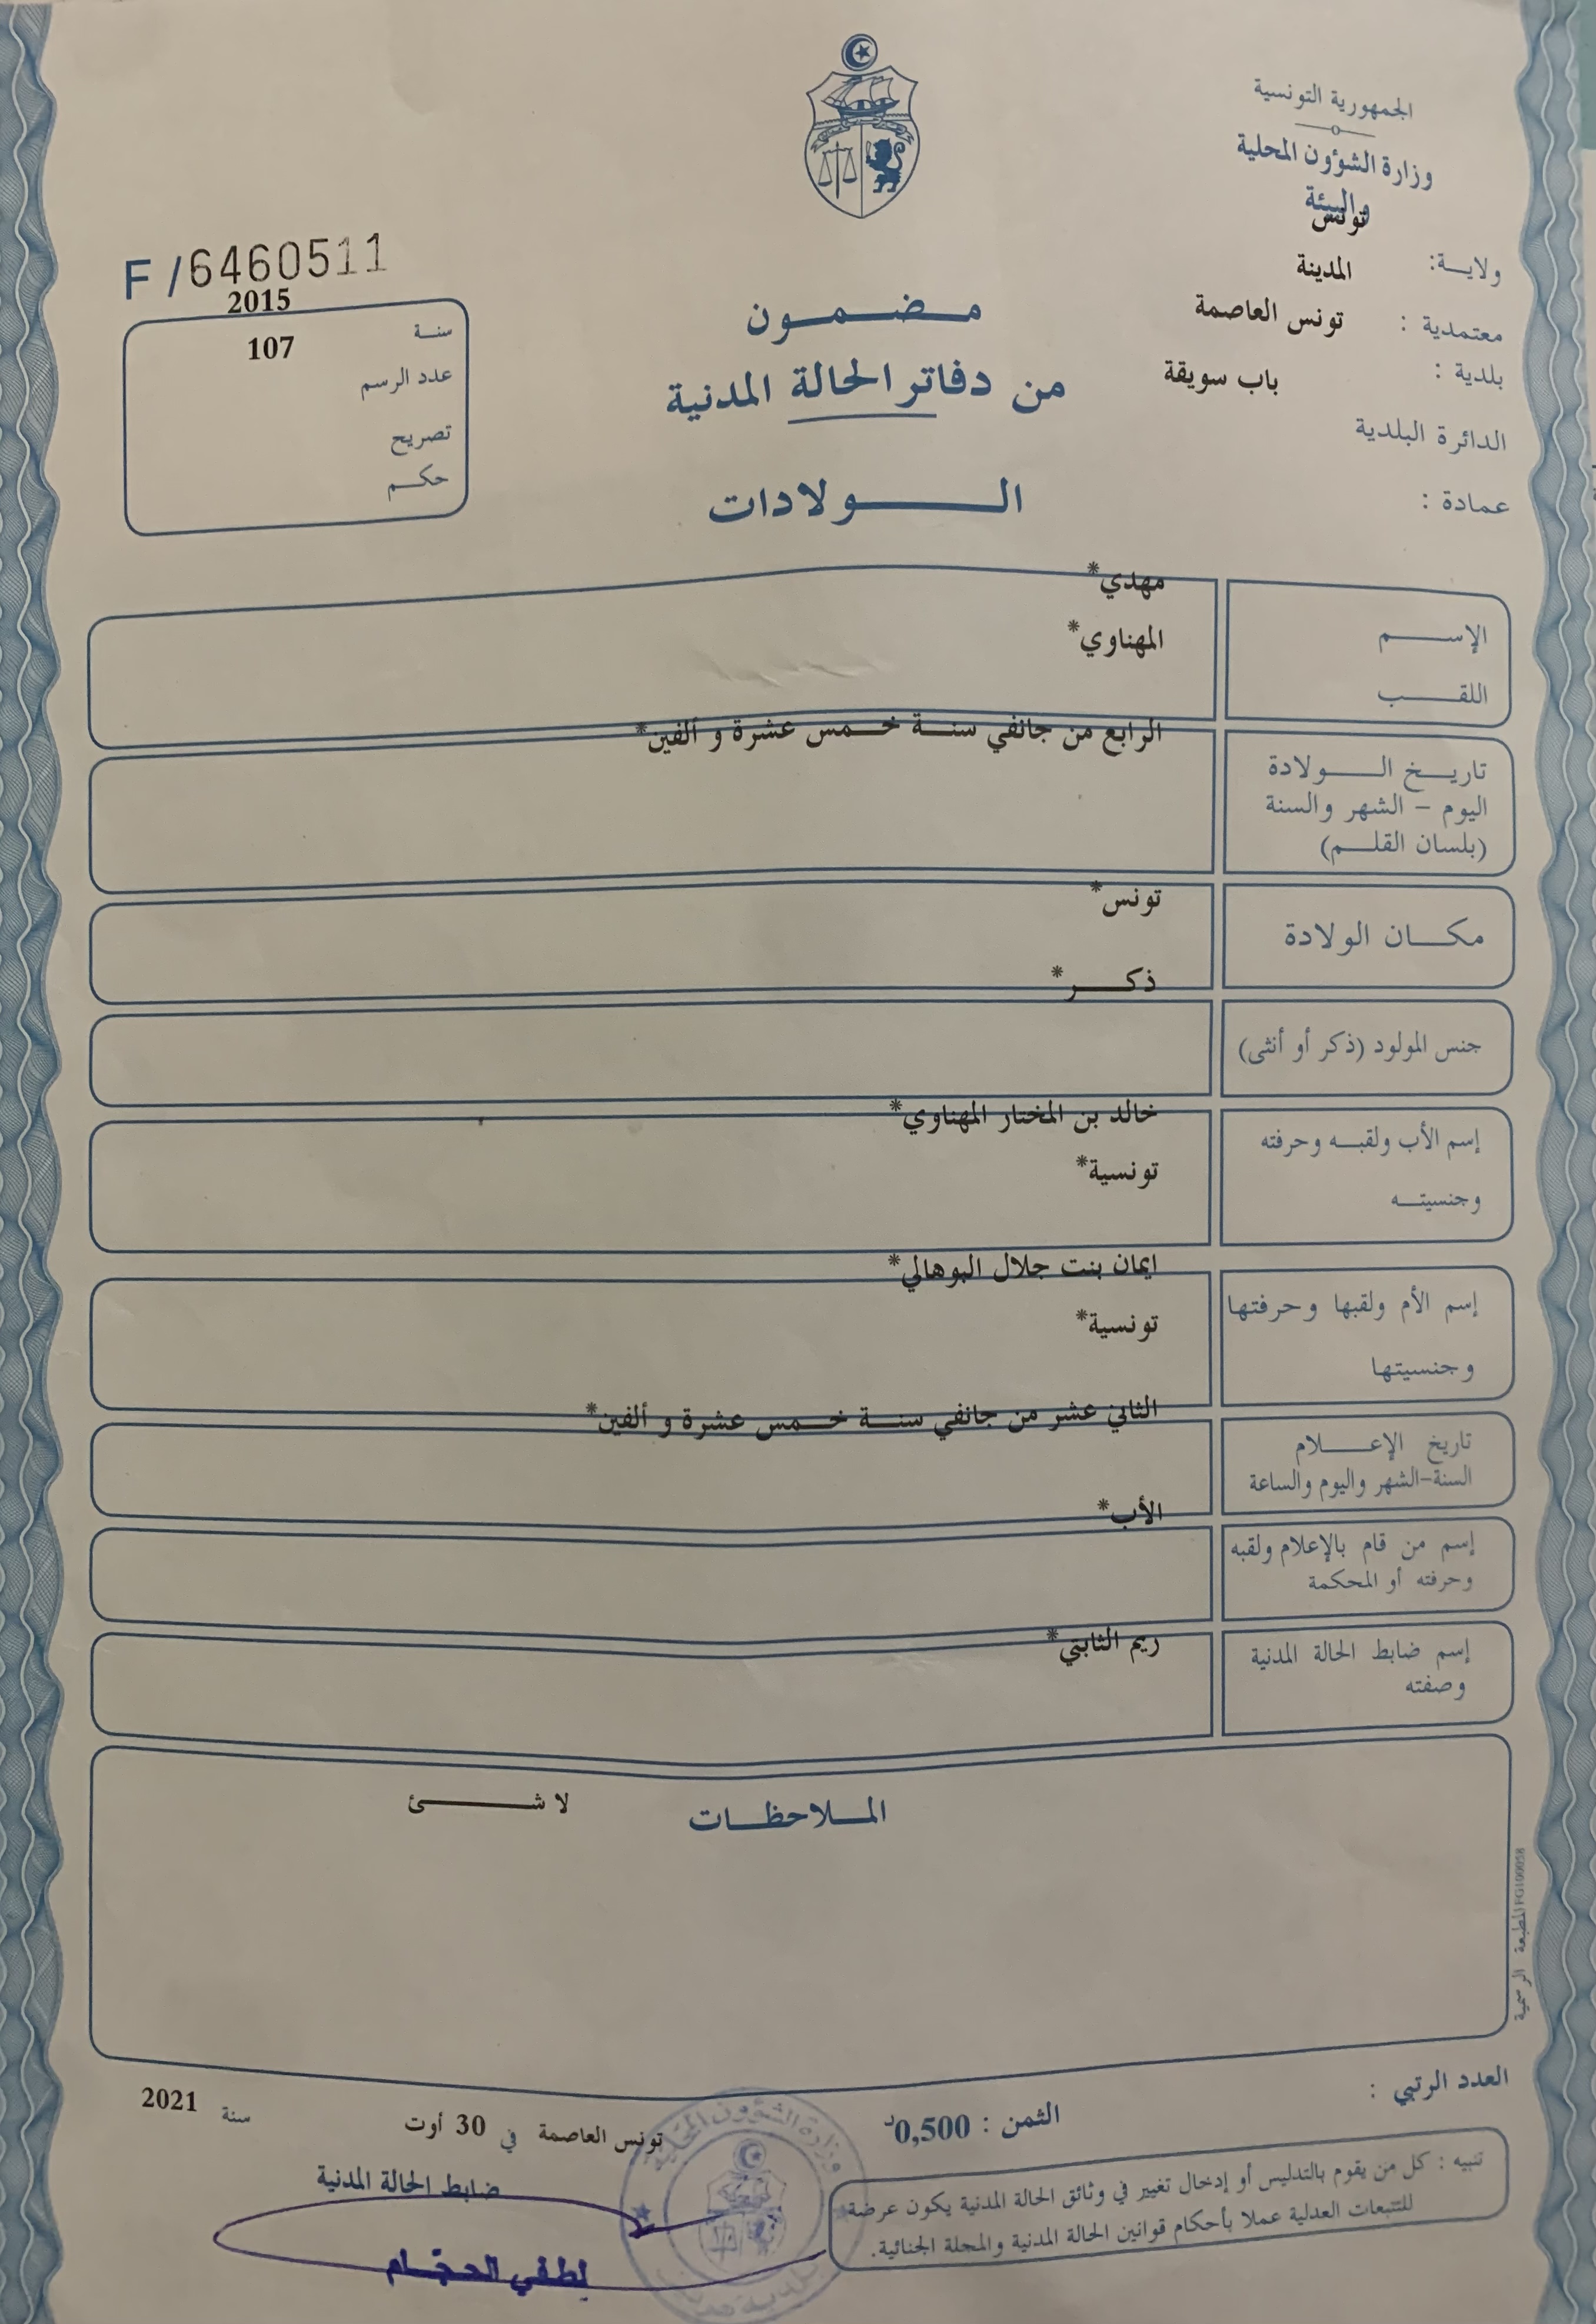 الجمهورية التونسية
وزارة الشؤون المحلية
والبيئة
ولايــة: تونس
معتمدية : المدينة
بلدية : تونس العاصمة
الدائرة البلدية باب سويقة
عمادة :
F /6460511
سنـة 2015
عدد الرسم 107
تصريح
حكــم
مــضــمــون
من دفاتر الحالة المدنية
الــولادات
الإســـم مهدي*
اللقــب المهناوي*
تاريــخ الــولادة
اليوم – الشهر والسنة
(بلسان القلــم)
الرابع من جانفي سنــة خــمس عشرة و ألفين*
مكــان الولادة تونس*
جنس المولود (ذكر أو أنثى) ذكــر*
إسم الأب ولقبــه وحرفته خالد بن المختار المهناوي*
وجنسيتــه تونسية*
إسم الأم ولقبها وحرفتها ايمان بنت جلال البوهالي*
وجنسيتها تونسية*
تاريخ الإعــلام
السنة-الشهر واليوم والساعة
الثاني عشر من جانفي سنــة خــمس عشرة و ألفين*
إسم من قام بالإعلام ولقبه
وحرفته أو المحكمة
الأب*
إسم ضابط الحالة المدنية
وصفته
ريم الثابتي*
المــلاحظــات
لا شــــئ
المطبعة الرسمية FG100058
العدد الرتبي :
الثمن : 0,500د
تونس العاصمة في 30 أوت سنة 2021
ضابط الحالة المدنية
لطفي الحجّام
وزارة الشؤون المحلية
تنبيه : كل من يقوم بالتدليس أو إدخال تغيير في وثائق الحالة المدنية يكون عرضة
للتتبعات العدلية عملا بأحكام قوانين الحالة المدنية والمجلة الجنائية.